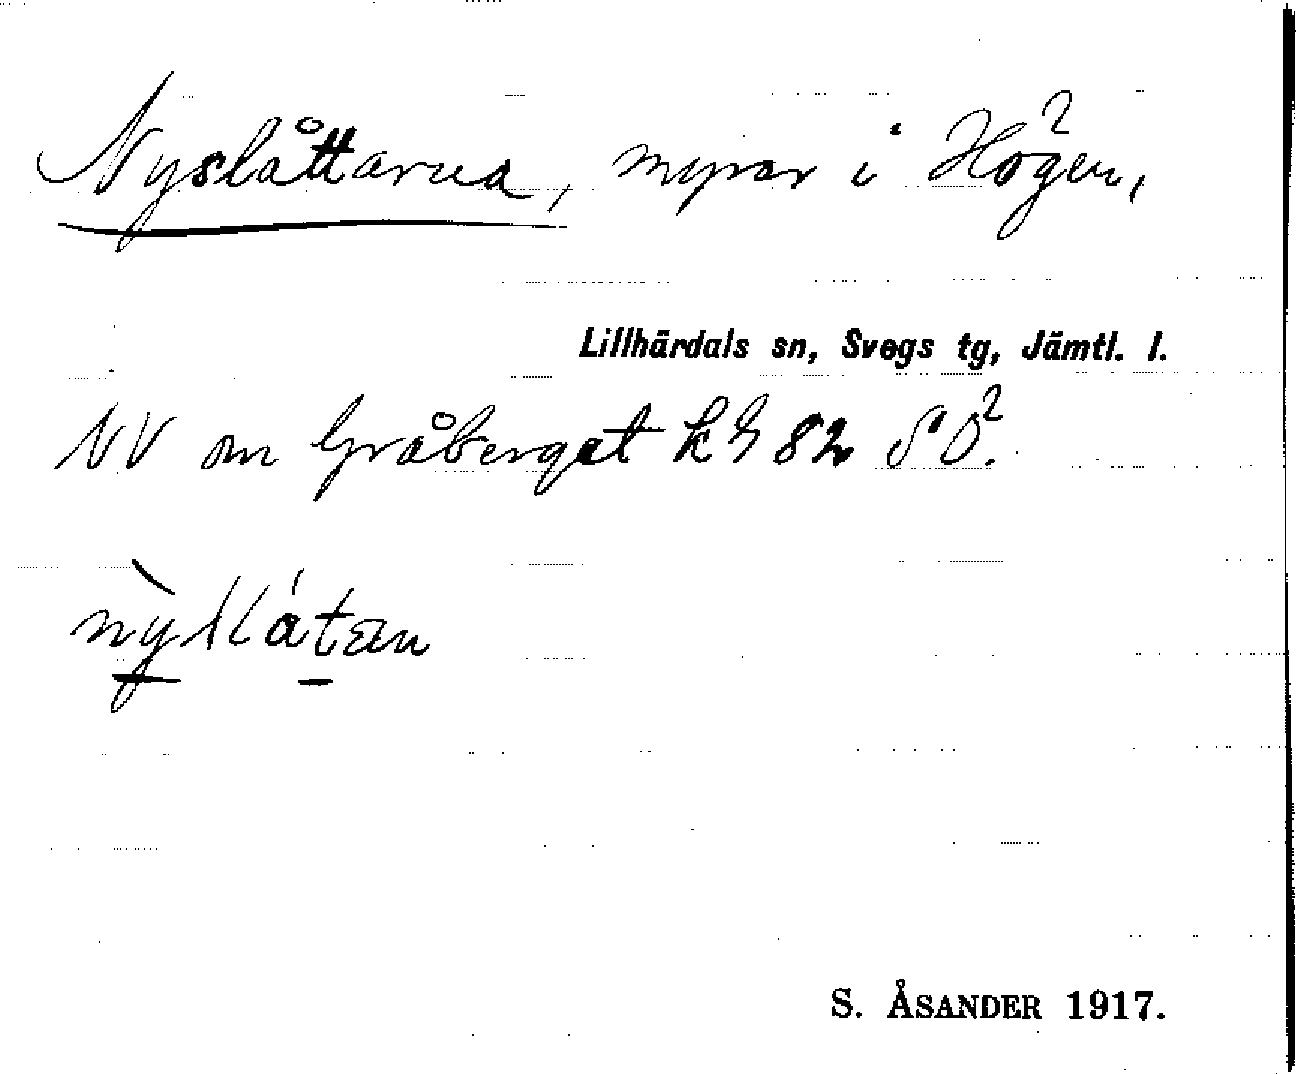 Nyslåttarna, myrar i Högen,
Lillhärdals sn, Svegs tg, Jämtl. l.
NV om Gråberget kg 82 SÖ.
nyslåtan
S. ÅSANDER 1917.